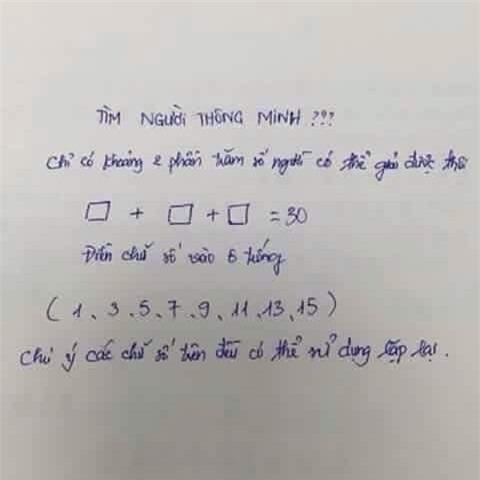 TÌM NGƯỜI THÔNG MINH ???
Chỉ có khoảng 2 phần trăm số người có thể giải được thôi
□ + □ + □ = 30
Điền chữ số vào ô trống
( 1, 3, 5, 7, 9, 11, 13, 15 )
Chú ý các chữ số trên đều có thể sử dụng lặp lại.